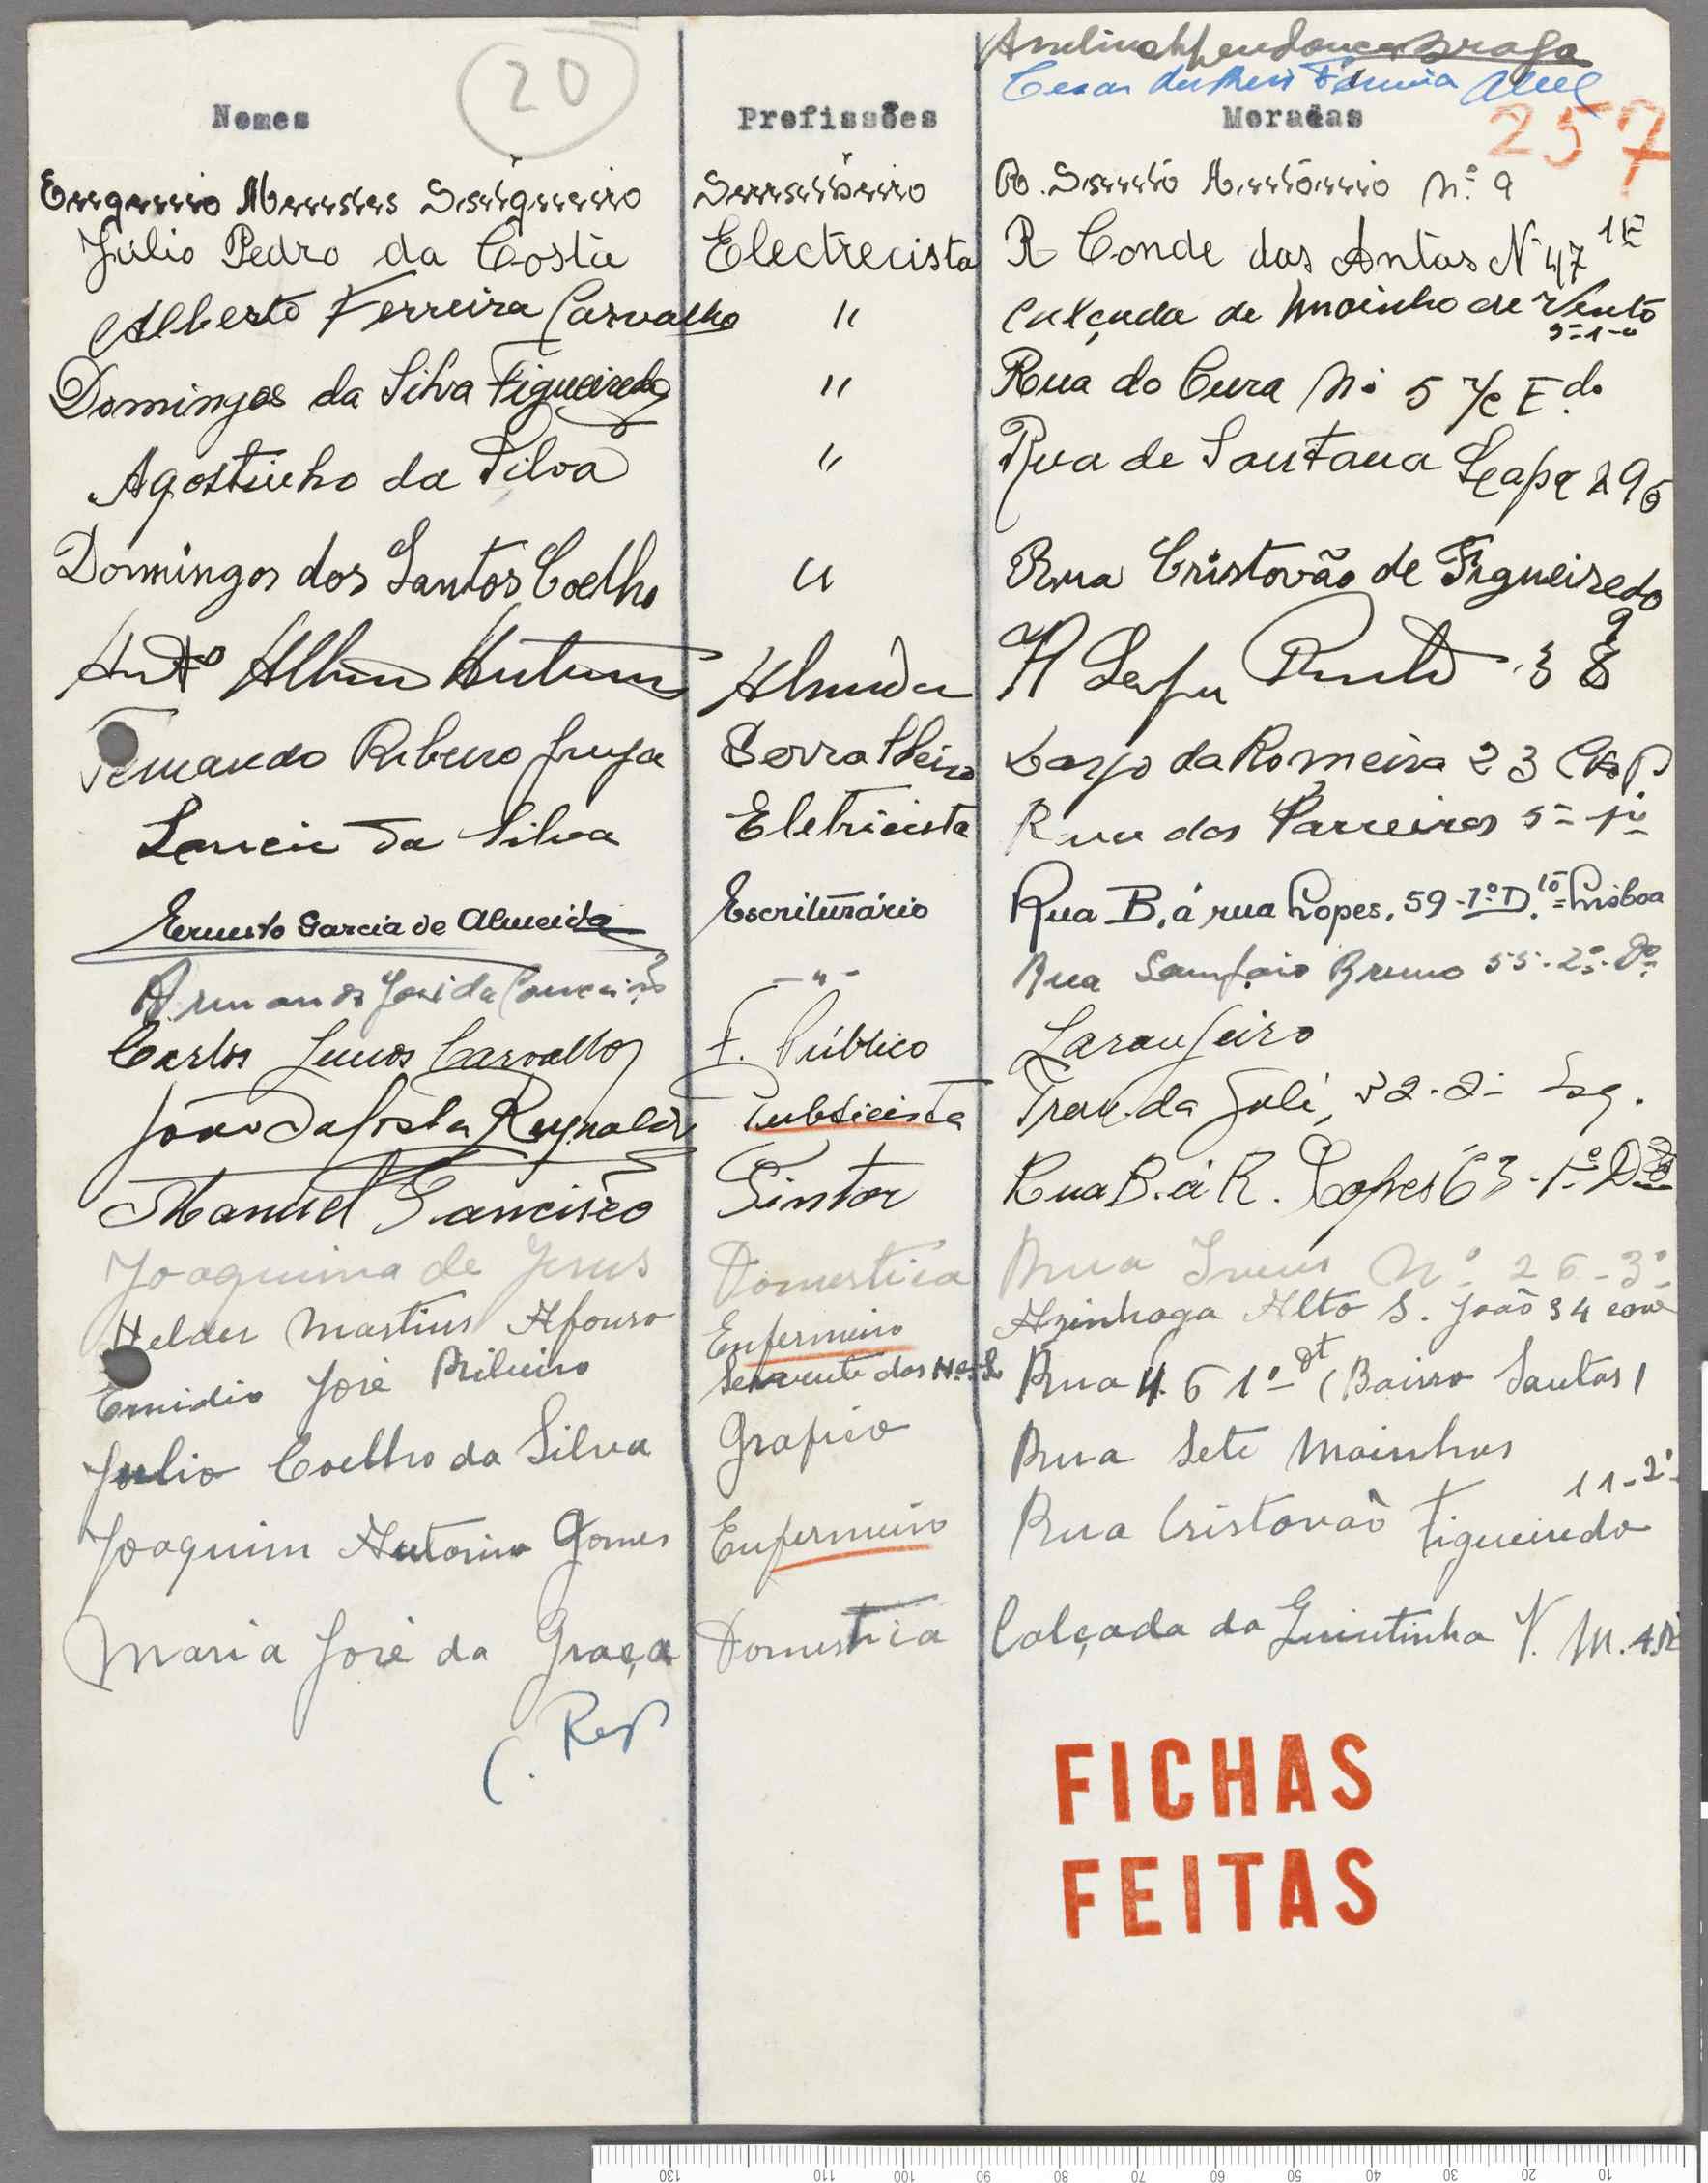 20
Braga
257
Nomes Profissões Moradas
Serralheiro R. Santo António nº 9
Júlio Pedro da Costa Electrecista R Conde das Antas Nº 47 1º E
Alberto Ferreira Carvalho " Calçada de Moinho de Vento
Domingos da Silva Figueiredo " Rua do Cura Nº 5 r/c Edo
Agostinho da Silva " Rua de Santana Lapa 296
Domingos dos Santos Coelho " Rua Cristovão de Figueiredo
9
Antº
Fernando Ribeiro Serralheiro Largo da Romeira 23
da Silva Eletricista Rua dos
Ernesto Garcia de Almeida Escriturário Rua B, á rua Lopes, 59-1º D.to = Lisboa
Armando José da Conceição - " - Rua Sampaio Bruno 55-2º Dº
Carlos Lemos Carvalho F. Público Laranjeiro
João da Costa Publicista Trav. da 32-2º Esq.
Manuel Francisco Pintor Rua B. á R. Lopes 63-1º Dto
Joaquina de Jesus Domestica Rua Nº 26-3º
Helder Martins Afonso Enfermeiro Azinhaga Alto S. João 34 cave
Emidio José Ribeiro Servente dos Rua 4 6 1º dt (Bairro Santos)
Julio Coelho da Silva Grafico Rua Sete Moinhos
11-2º
Joaquim Antonio Gomes Enfermeiro Rua Cristovão Figueiredo
Maria José da Graça Domestica Calçada da Quintinha V. M.
FICHAS
FEITAS